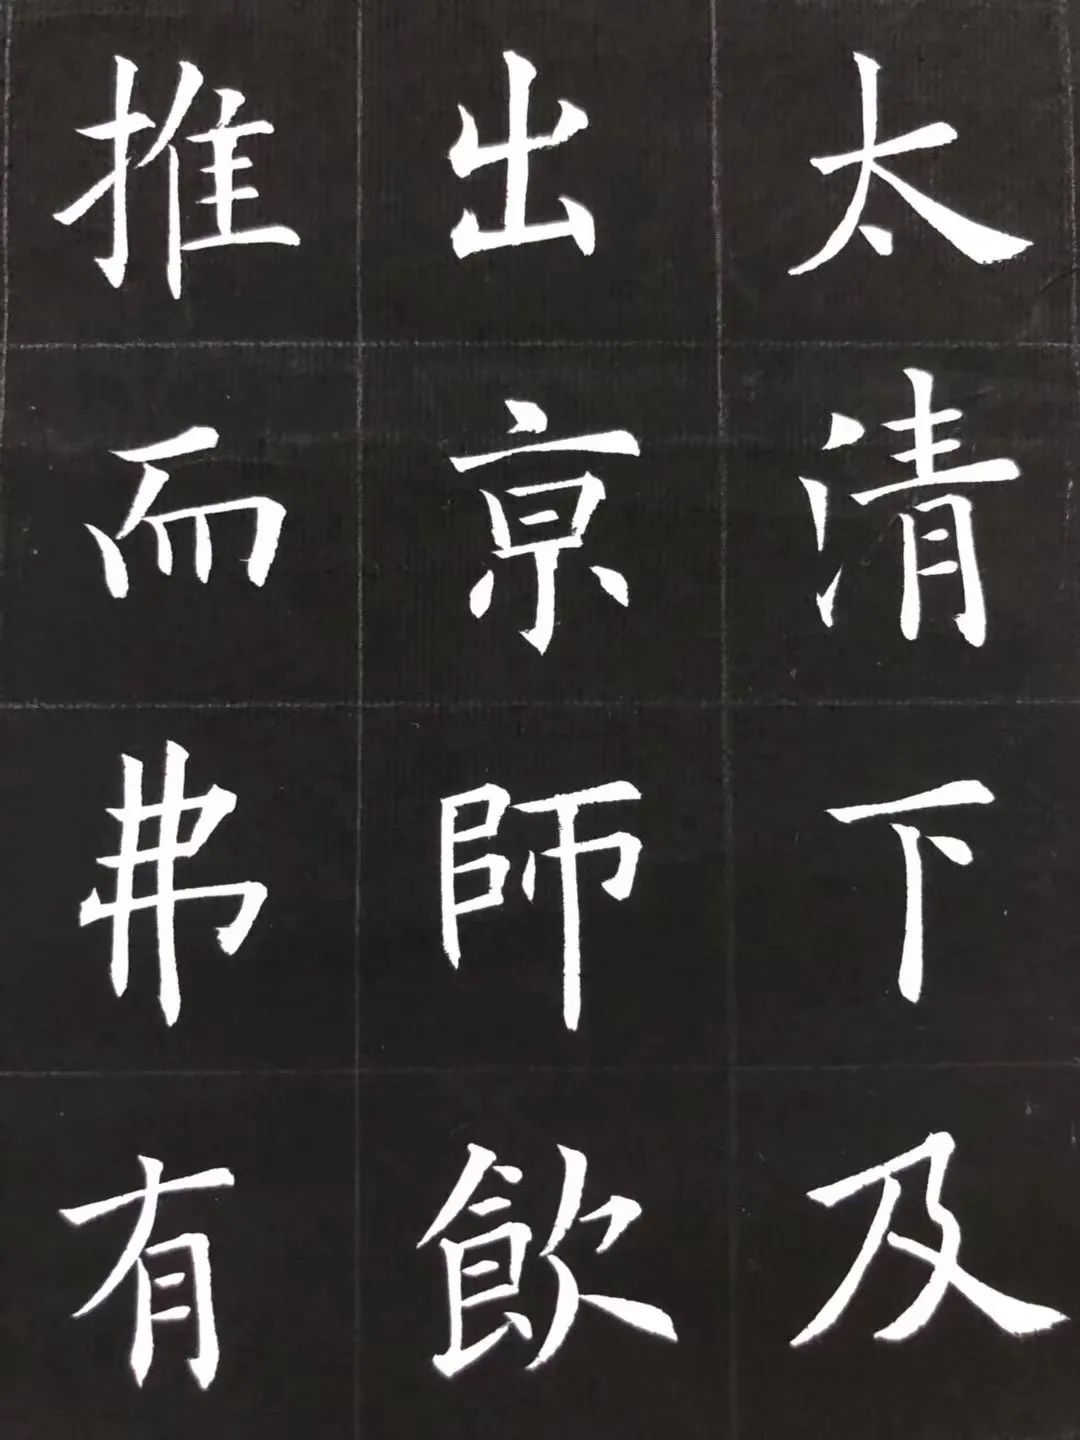 太清下及
出京師飲
推而弗有